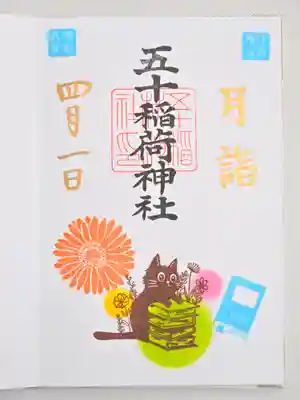 月詣
五十稲荷神社
四月一日